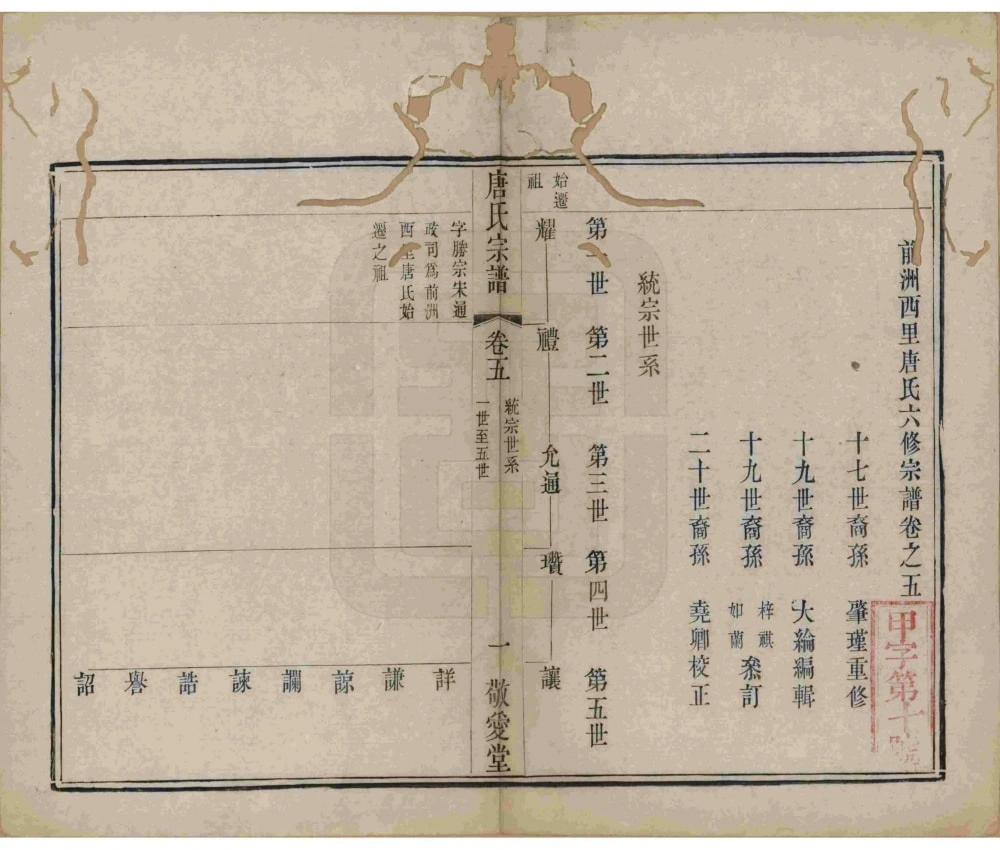 前洲西里唐氏六修宗譜卷之五
甲字第十號
十七世裔孫 肇瑾重修
十九世裔孫 大綸編輯
十九世裔孫 梓祺 如蘭 叅訂
二十世裔孫 堯卿校正
統宗世系
第一世 第二世 第三世 第四世 第五世
始遷祖
耀 禮 允通 瓚 讓
唐氏宗譜 卷五 統宗世系 一世至五世 一 敬愛堂
字勝宗宋通
政司爲前洲
西里唐氏始
遷之祖
詳
謙
諒
讕
諫
誥
譽
詔